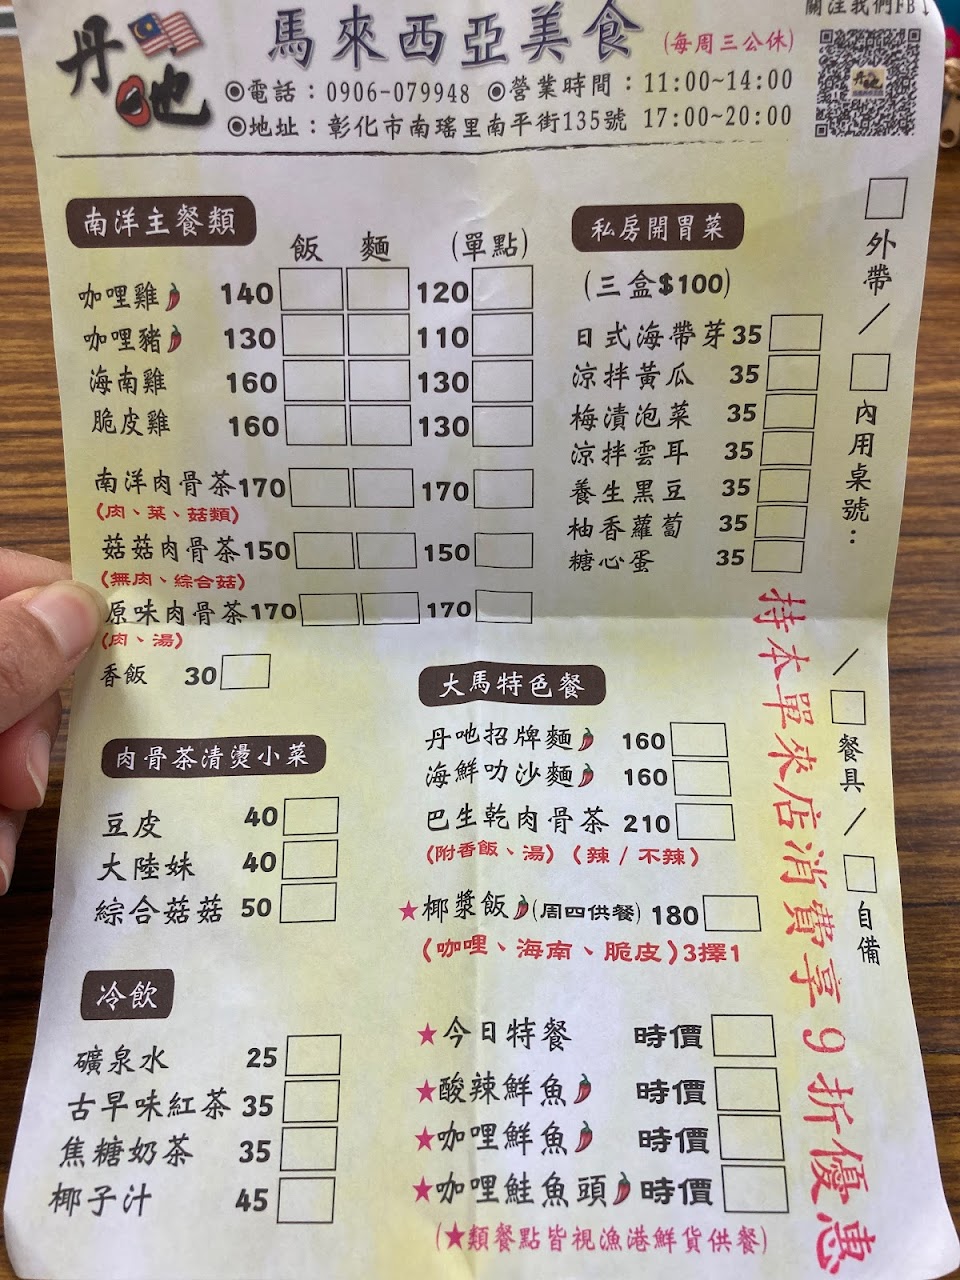 關注我們FB↓
丹吔
馬來西亞美食 (每周三公休)
◉電話：0906-079948 ◉營業時間：11:00~14:00
◉地址：彰化市南瑤里南平街135號 17:00~20:00
南洋主餐類
飯 麵 (單點)
咖哩雞 140 120
咖哩豬 130 110
海南雞 160 130
脆皮雞 160 130
南洋肉骨茶170 170
(肉、菜、菇類)
菇菇肉骨茶150 150
(無肉、綜合菇)
原味肉骨茶170 170
(肉、湯)
香飯 30
肉骨茶清燙小菜
豆皮 40
大陸妹 40
綜合菇菇 50
冷飲
礦泉水 25
古早味紅茶 35
焦糖奶茶 35
椰子汁 45
私房開胃菜
(三盒$100)
日式海帶芽 35
涼拌黃瓜 35
梅漬泡菜 35
涼拌雲耳 35
養生黑豆 35
柚香蘿蔔 35
糖心蛋 35
大馬特色餐
丹吔招牌麵 160
海鮮叻沙麵 160
巴生乾肉骨茶 210
(附香飯、湯)(辣/不辣)
★椰漿飯(周四供餐) 180
(咖哩、海南、脆皮)3擇1
★今日特餐 時價
★酸辣鮮魚 時價
★咖哩鮮魚 時價
★咖哩鮭魚頭 時價
(★類餐點皆視漁港鮮貨供餐)
□外帶/□內用桌號：
/□餐具/□自備
持本單來店消費享9折優惠